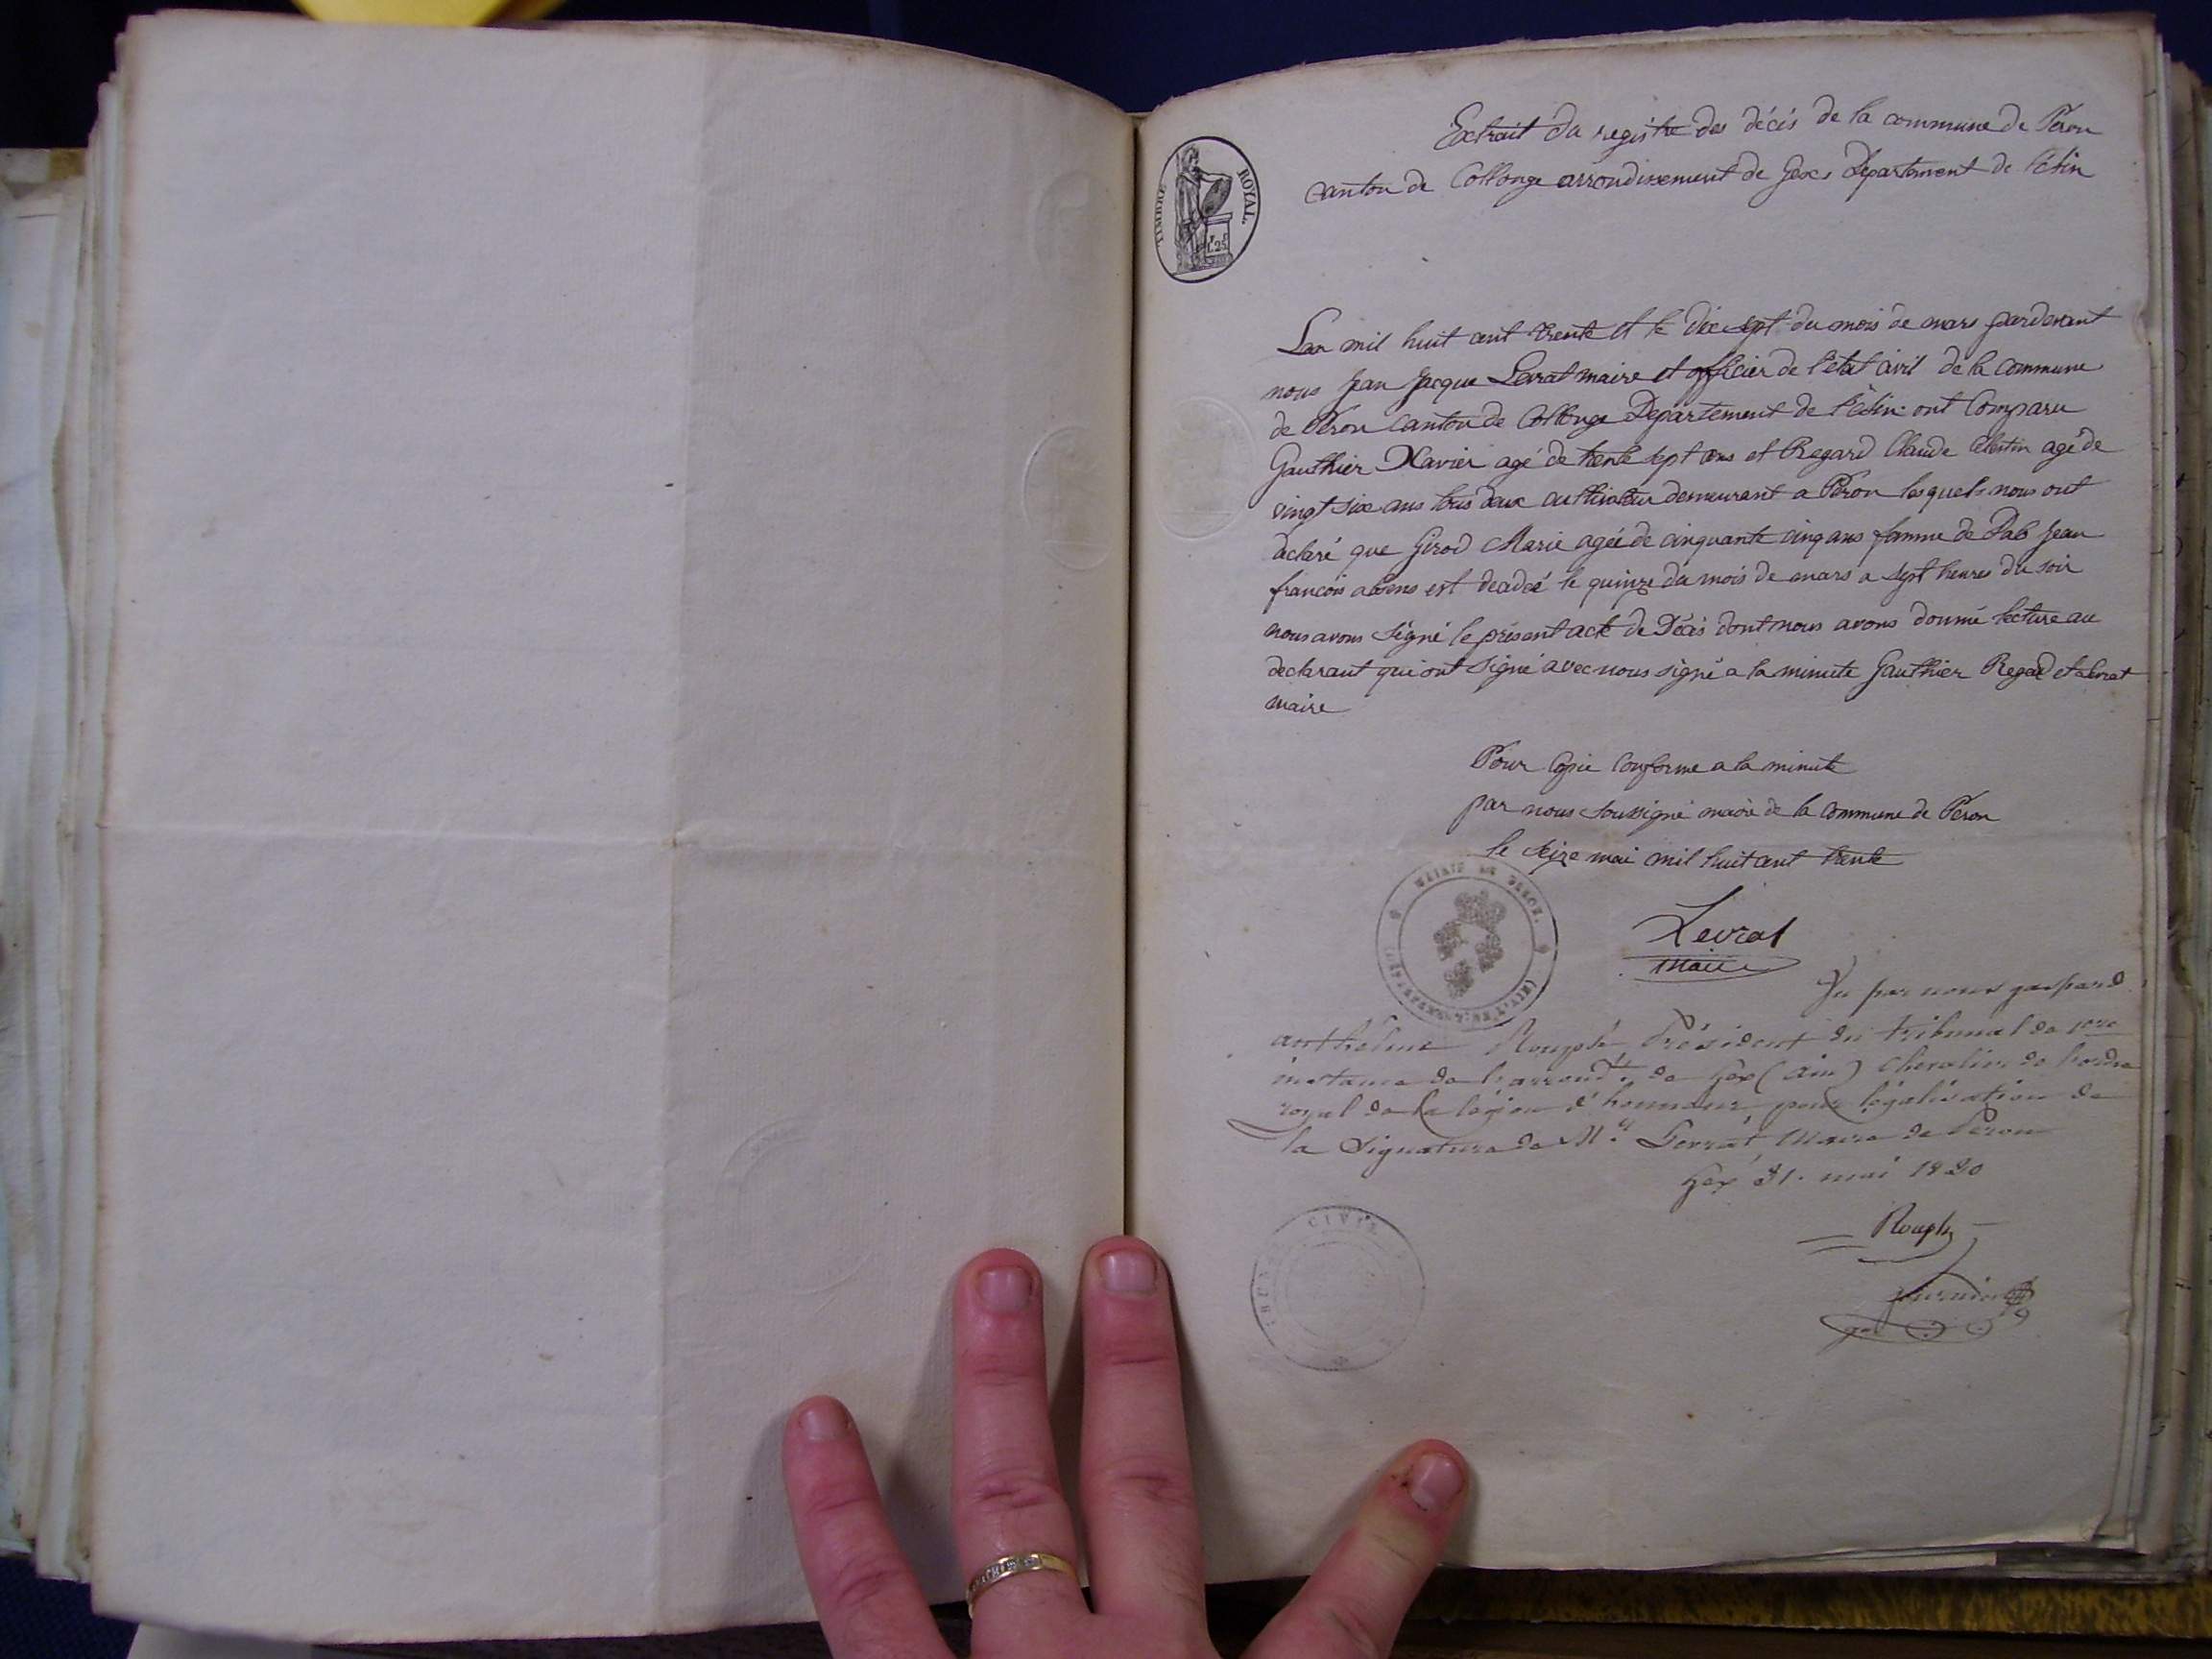 TIMBRE ROYAL
Extrait du registre des décés de la commune de Peron
canton de Collonge arrondissement de Gex Département de l'Ain
Lan mil huit cent trente et le dix sept du mois de mars pardevant
nous Jean Jacque Levrat maire et officier de l'etat civil de la commune
de Péron Canton de Collonge Département de l'Ain ont Comparu
Gauthier Xavier agé de trente sept ans et Regard Claude Célestin agé de
vingt six ans tous deux cultivateur demeurant a Péron lesquels nous ont
declaré que Girod Marie agée de cinquante cinq ans famme de Jean
francois absens est deadcé le quinze du mois de mars a sept heures du soir
nous avons signé le présent acte de Décés dont nous avons donné lecture au
declarant qui ont signé avec nous signé a la minute Gauthier Regard et Levrat
maire
Pour Copie Conforme a la minute
par nous soussigné maire de la Commune de Péron
le seize mai mil huit cent trente
MAIRIE DE PERON.
Levrat
maire
Vu par nous gaspard
anthelme Rouph Président du tribunal de 1ere
instance de l'arrondt. de Gex (ain) Chevalier de l'ordre
royal de la légion d'honneur, pour légalisation de
la Signature de Mr. Levrat Maire de Peron
Gex 21. mai 1830
CIVIL
Rouph